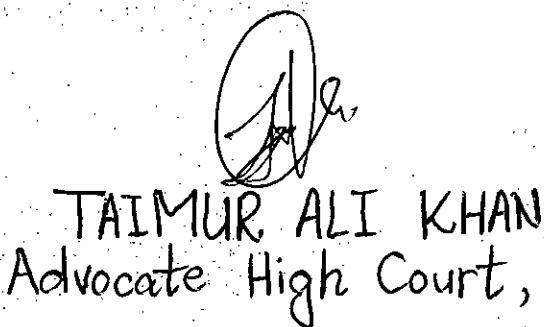 TAIMUR ALI KHAN
Advocate High Court,